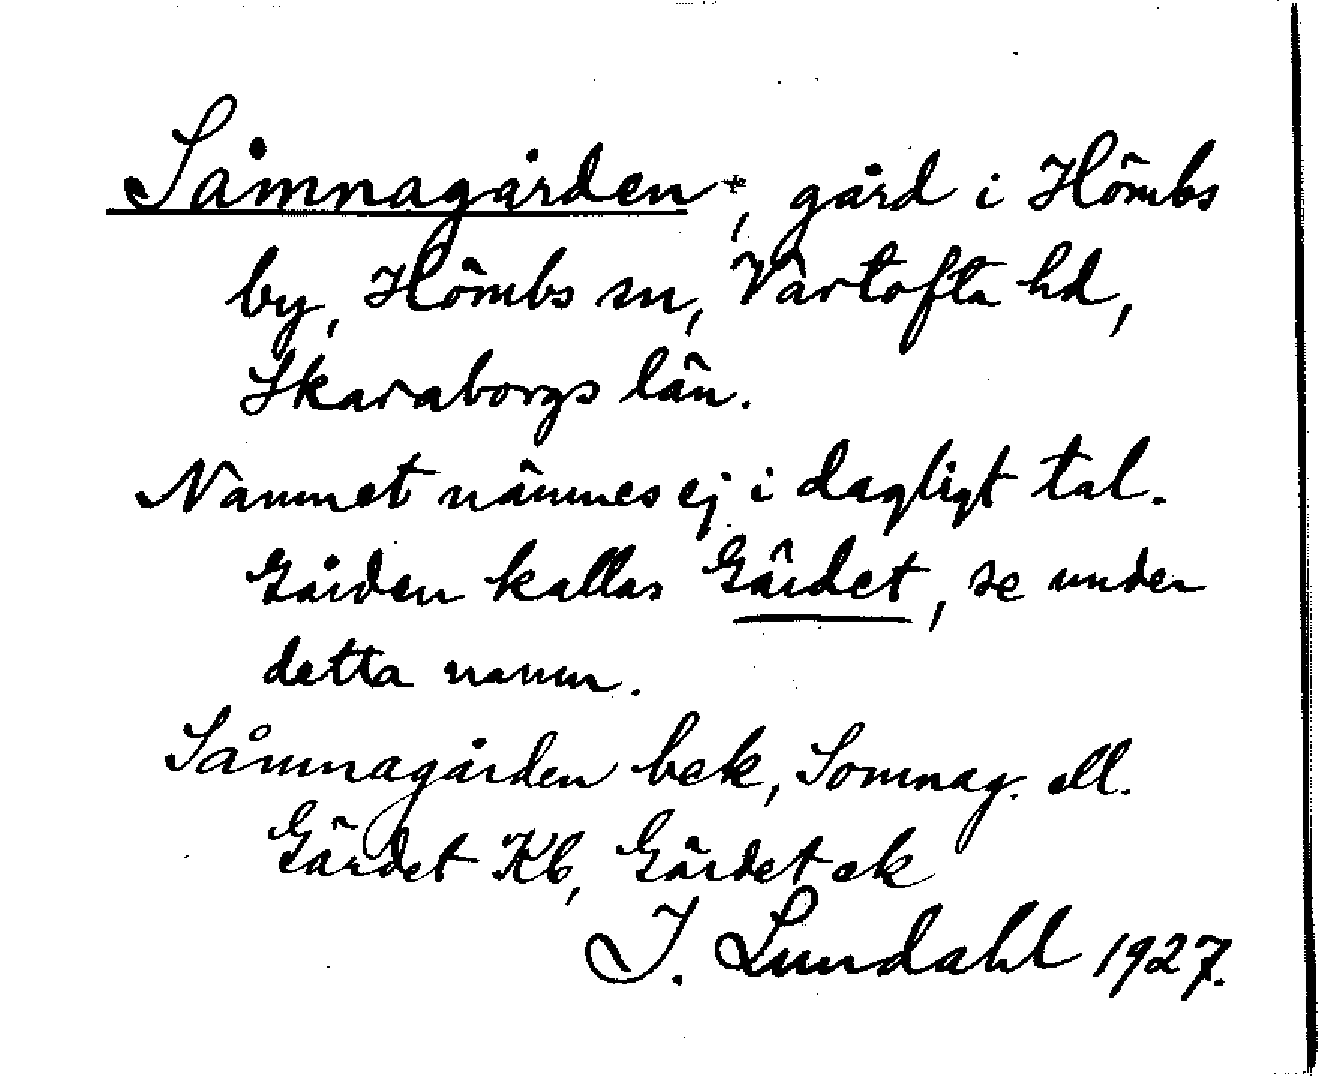 Såmnagården +, gård i Hömbs
by, Hömbs sn, Vartofta hd,
Skaraborgs län.
Namnet nämnes ej i dagligt tal.
Gården kallas Gärdet, se under
detta namn.
Såmnagården bek, Somnag. ell.
Gärdet Kb, Gärdet ek
I. Lundahl 1927.